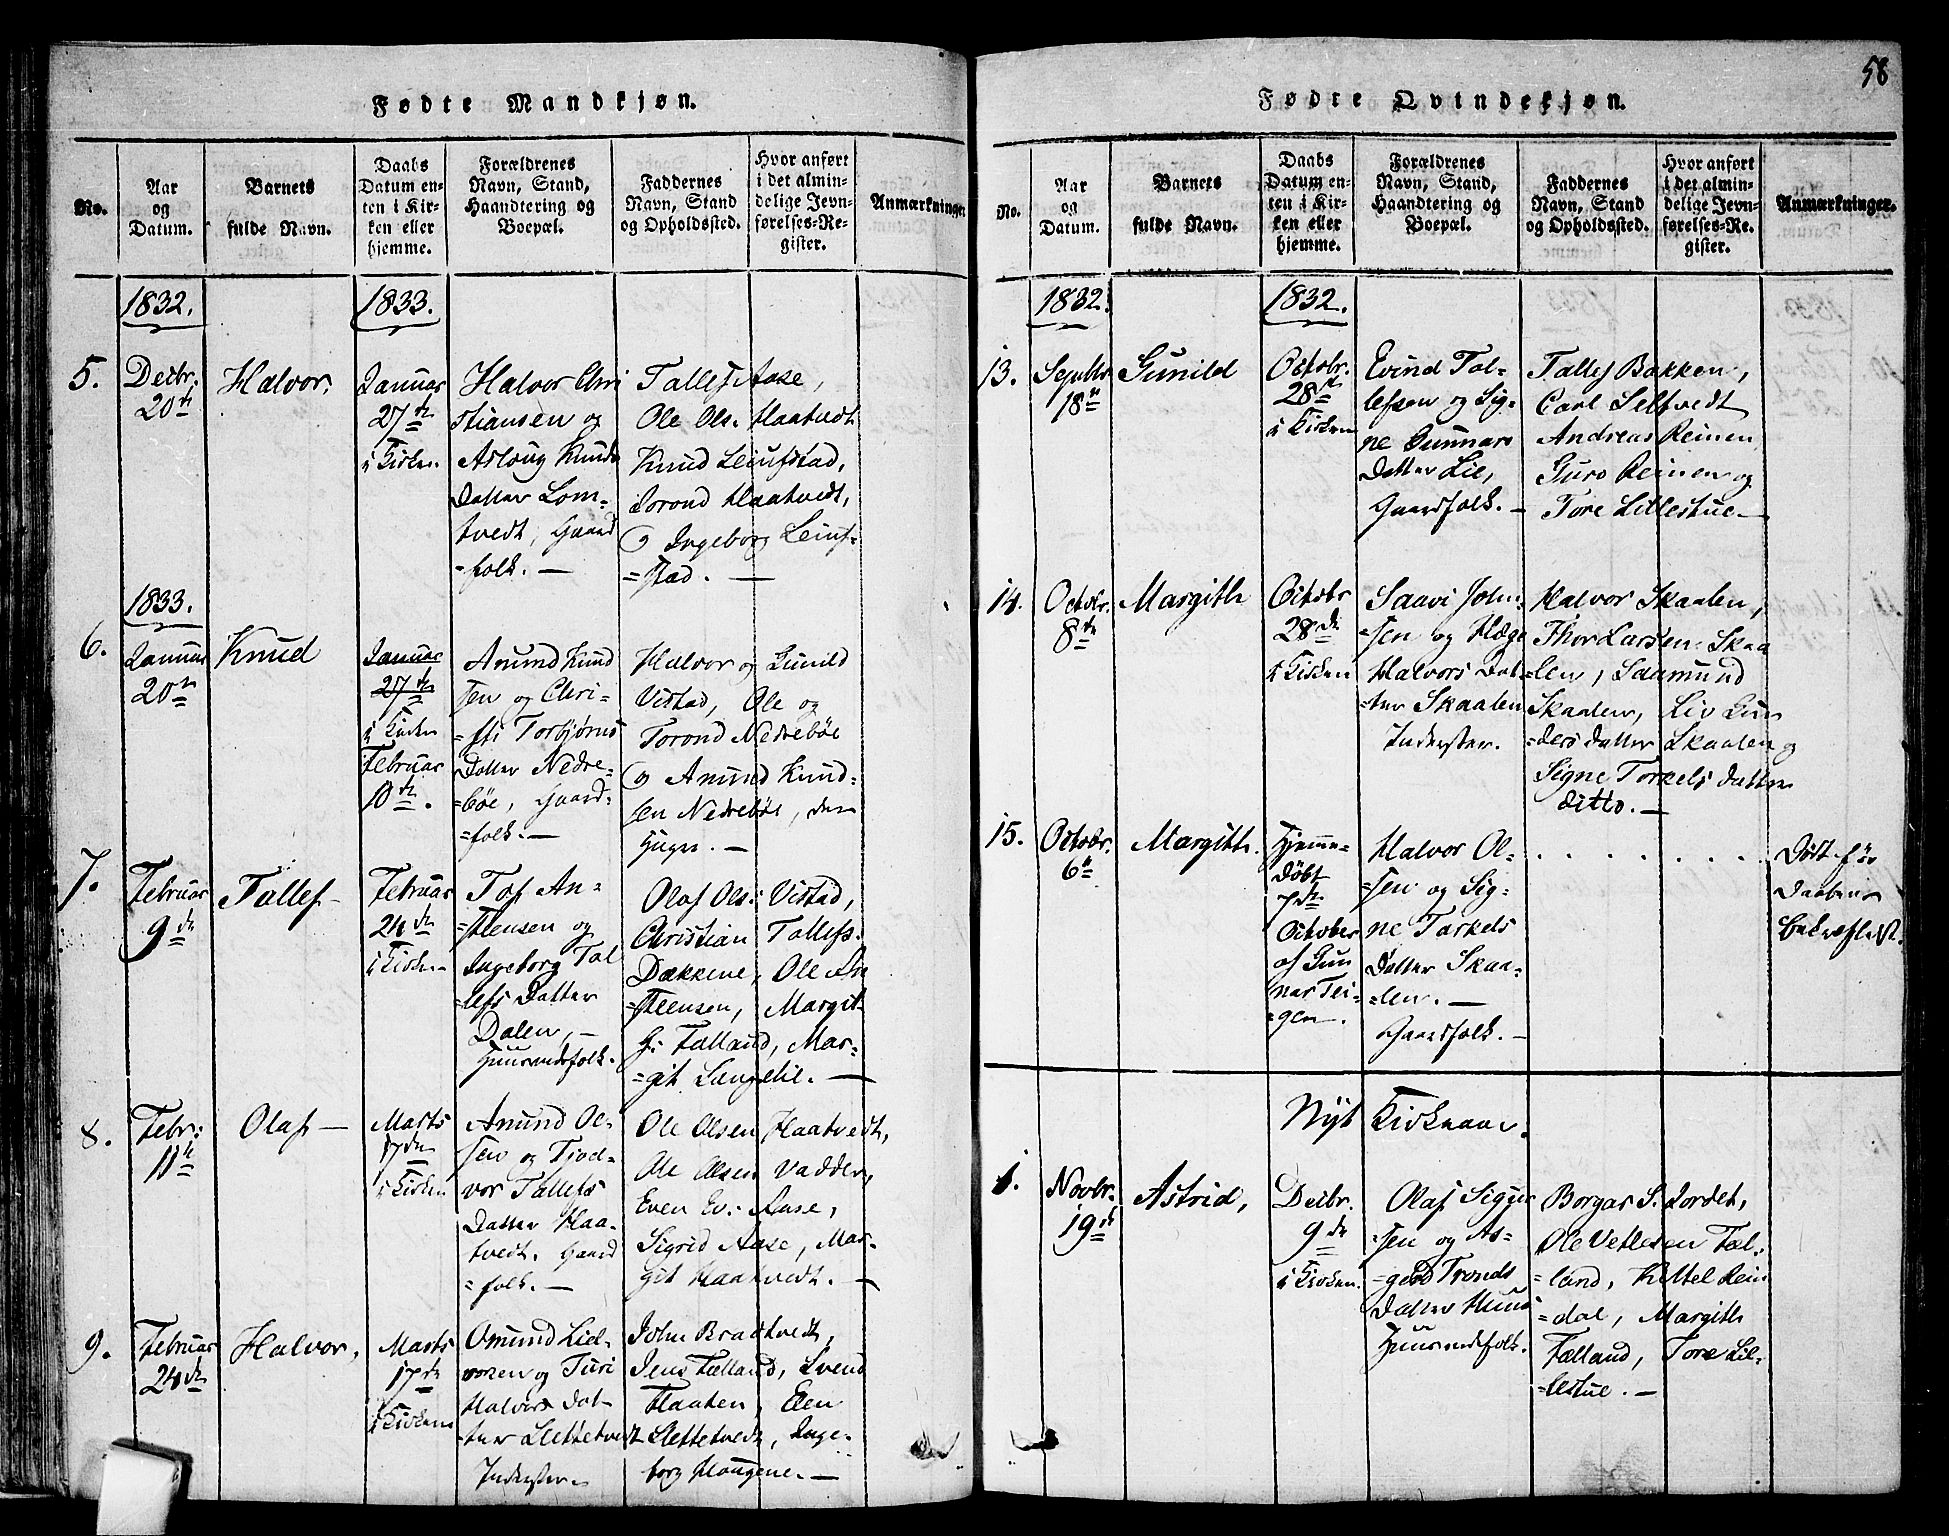 Fødte Mandkjøn.
No.
Aar
og
Datum.
Barnets
fulde Navn.
Daabs
Datum en-
ten i Kir-
ken eller
hjemme.
Forældrenes
Navn, Stand,
Haandtering og
Boepæl.
Faddernes
Navn, Stand
og Opholdssted.
Hvor anført
i det almin-
delige Jevn-
førelses-Re-
gister.
Anmærkninger
1832.
1833.
5.
Decbr.
20de
Halvor.
Januar
27de
i Kirken
Halvor Chri
stiansen og
Asloug Knuds
Datter Lom-
tvedt, Gaard
=folk. —
Tallef Aase,
Ole Ols. Haatvedt
Knud Leiufstad,
Torond Haatvedt,
og Ingeborg Leiuf-
=stad. —
1833.
6.
Januar
20de
Knud
Januar
27de
i Kirken
Februar
10de.
Anund Knud
sen og Chri-
=sti Torbjørns
Datter Nedre-
=bøe, Gaard-
=folk. —
Halvor og Gunild
Vistad, Ole og
Torond Nedrebøe
og Anund Knud-
sen Nedrebøe, den
Yngre. —
7.
Februar
9de
Tallef —
Februar
24de
i Kirken
Tof An-
=steensen og
Ingeborg Tal
=lefs Datter
Dalen, —
Huusmandsfolk.
Olaf Ols: Vistad,
Christian Tallefs.
Dækkene, Ole An
=steensen, Margit
G: Fælland, Mar-
=git Langelie. —
8.
Febr:
11te
Olaf —
Marts
17de
i Kirken
Anund Ol-
sen og Tjod-
vor Tallefs
Datter Haa-
tvedt. Gaard
=folk. —
Ole Olsen Haatvedt,
Ole Olsen Vadder,
Even Ev: Aase,
Sigrid Aase, Mar-
git Haatvedt. —
9.
Februar
24de
Halvor,
Marts
17de
i Kirken
Omund Lied-
vorsen og Turi
Halvors Dat-
=ter Slettetvedt
Inderster.
John Bradtvedt,
Jens Fælland, Svend
Haaten, Elen
Slettetvedt, Inge-
borg Haugene. —
58
Fødte Qvindekjøn.
No.
Aar
og
Datum.
Barnets
fulde Navn.
Daabs
Datum en-
ten i Kir-
ken eller
hjemme.
Forældrenes
Navn, Stand,
Haandtering og
Boepæl.
Faddernes
Navn, Stand
og Opholdssted.
Hvor anført
i det almin-
delige Jevn-
førelses-Re-
gister.
Anmærkninger.
1832.
1832.
13.
Septbr
18de
Gunild
Octobr.
28de
i Kirken
Evind Tol-
lefsen og Sig-
ne Gunnars
Datter Lie,
Gaardfolk. —
Tallef Bakken,
Carl Seltvedt
Andreas Reinen
Guro Reinen og
Tore Lillestue —
14.
Octobr.
8de
Margith
Octobr
28de
i Kirken
Saavi John-
=sen og Hæge
Halvors Dat-
=ter Skaalen
Inderster.
Halvor Skaalen,
Thor Larsen Skaa
=len, Saamund
Skaalen, Liv Gun
=ders datter Skaalen og
Signe Torkels datter
ditto. —
15.
Octobr.
6te
Margith.
Hjemme-
døbt
7de
October
af Gun
nar Tei-
=gen.
Halvor Ol-
=sen og Sig-
ne Torkels
Datter Skaa-
=len. —
Gaardfolk. —
. . . . . . . .
Dødt før
Daaben
bekræftedt.
Nyt Kirkeaar.
1.
Novbr.
19de
Astrid,
Decbr.
9de
i Kirken.
Olaf Sigur
=sen og As-
=gerd Tronds
Datter Huus
Huusmandsfolk.
Borgar S. Jordet,
Ole Vetlesen Fæl-
=land, Kittel Rein
=dal, Margith
Fælland, Tore Lil-
=lestue. —